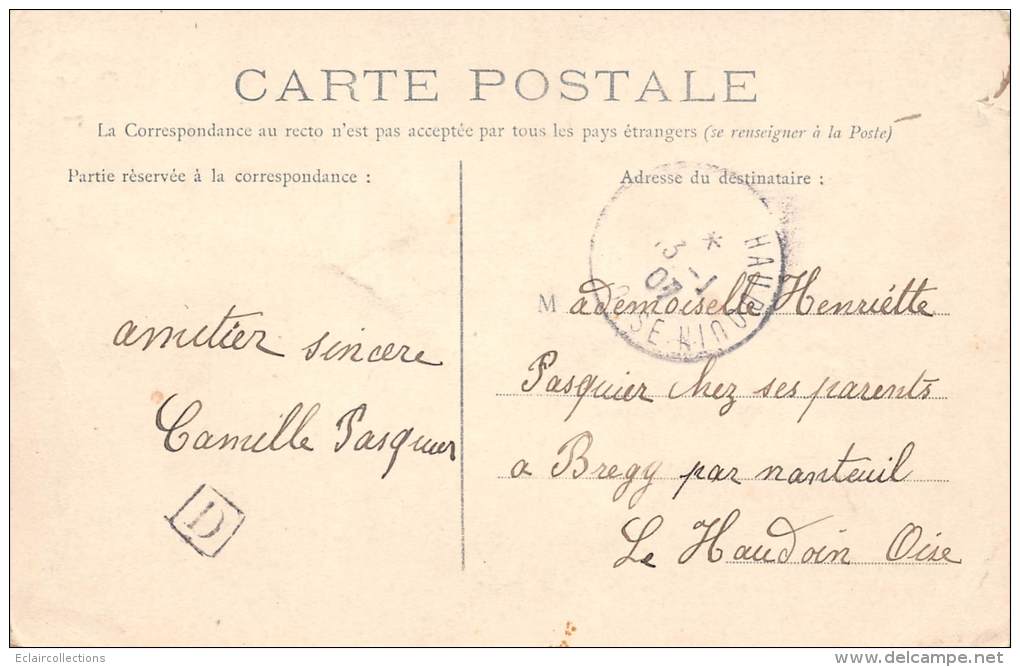 CARTE POSTALE
La Correspondance au recto n'est pas acceptée par tous les pays étrangers (se renseigner à la Poste)
Partie rèservée à la correspondance :
amitier sincere
Camille Pasquier
D
Adresse du destinataire :
Mademoiselle Henriétte
Pasquier chez ses parents
a Bregy par nanteuil
Le Haudoin Oise
3 -1
07
Eclaircollections
www.delcampe.net